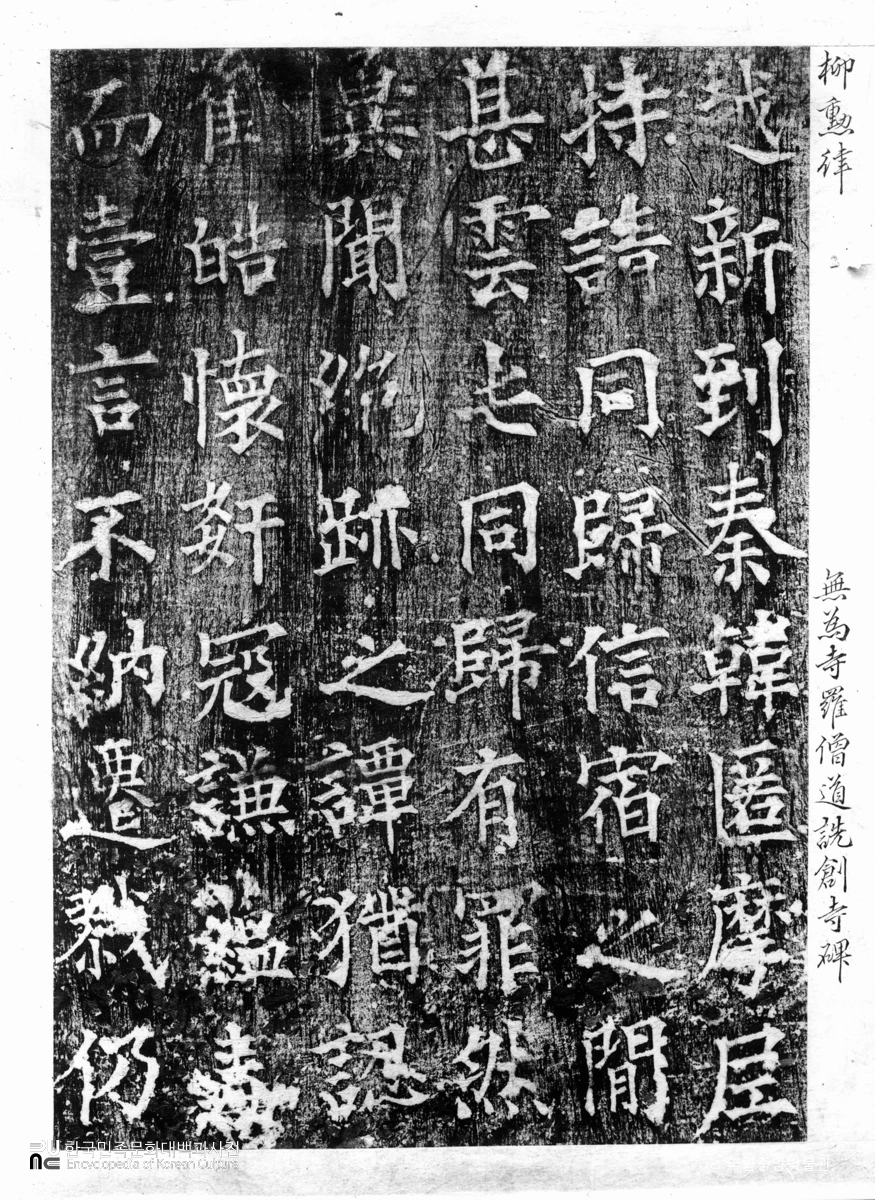 柳勲律
無為寺羅僧道詵創寺碑
越新到秦韓匿摩尼
特誥同歸信宿之間
甚雲同歸有罪然
異聞絕跡之譚猶認
崔皓懷奸寇謙韞毒
而壹言不納遷戮仍
한국민족문화대백과사전
Encyclopedia of Korean Culture